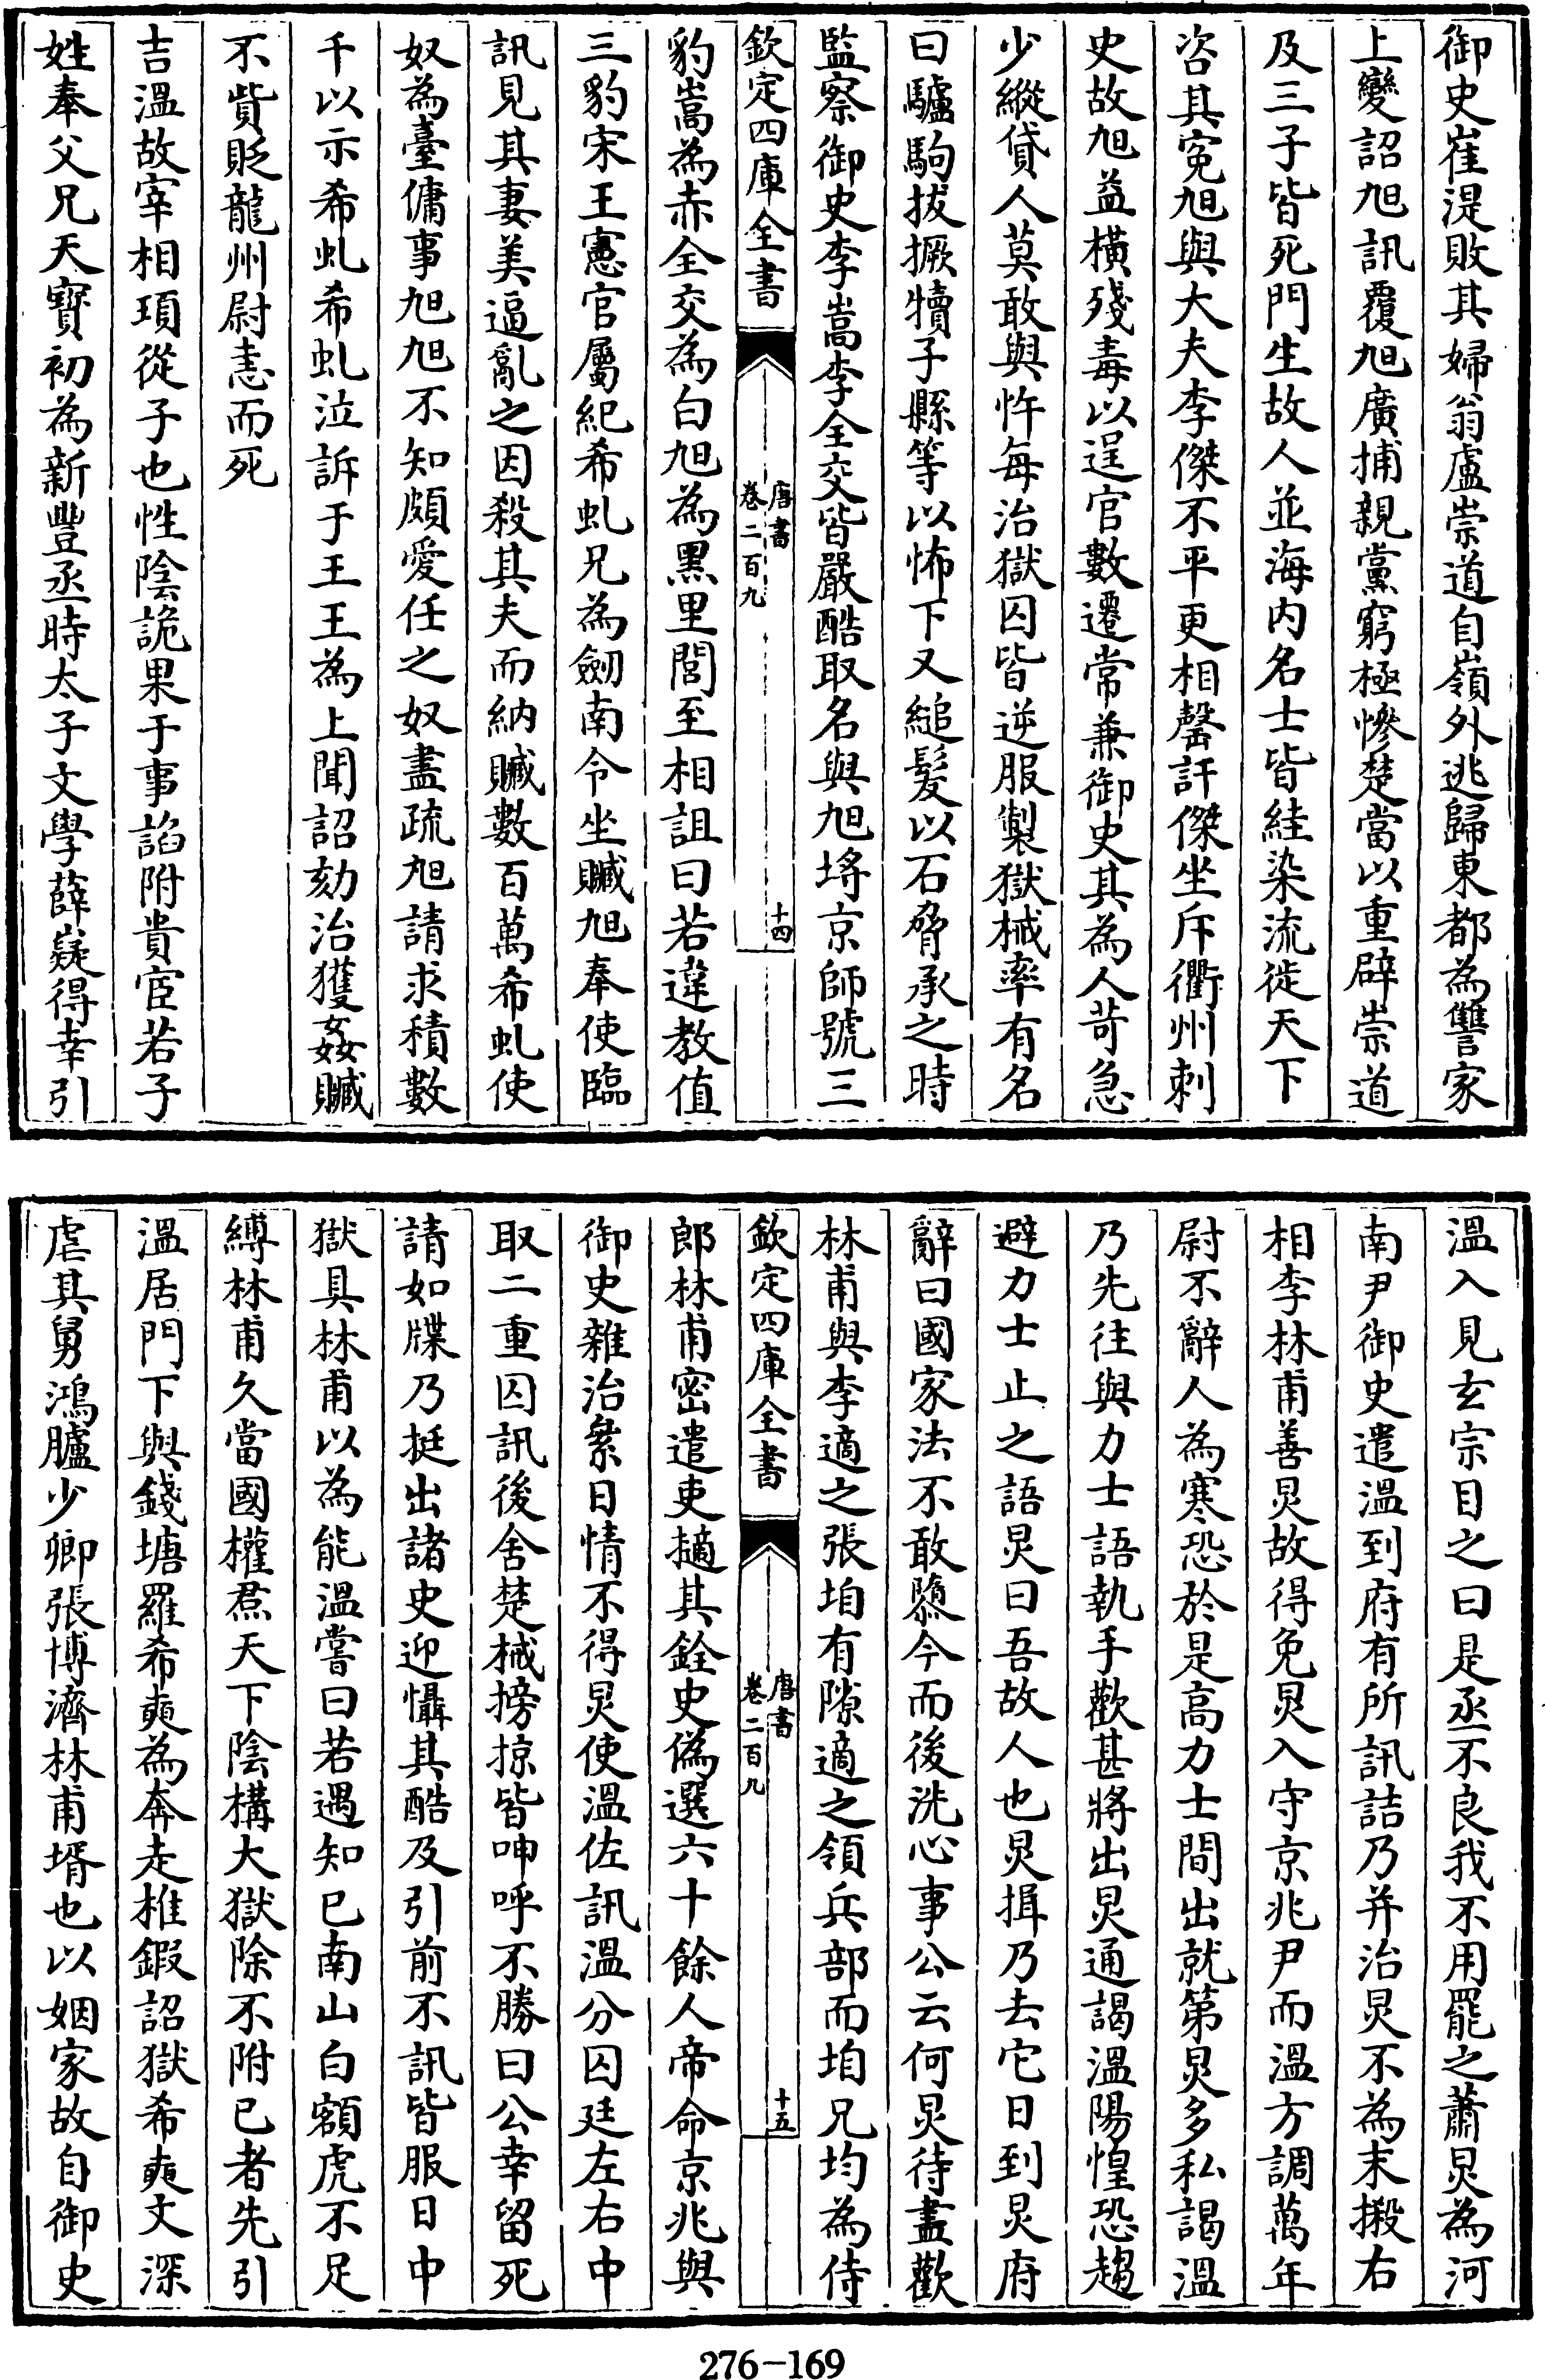 御史崔湜敗其婦翁盧崇道自嶺外逃歸東都為讐家
上變詔旭訊覆旭廣捕親黨窮極慘楚當以重辟崇道
及三子皆死門生故人並海内名士皆絓染流徙天下
咨其寃旭與大夫李傑不平更相罄訐傑坐斥衢州刺
史故旭益横殘毒以逞官數遷常兼御史其為人苛急
少縱貸人莫敢與忤每治獄囚皆逆服製獄械率有名
曰驢駒拔撅犢子縣等以怖下又縋髮以石脅承之時
監察御史李嵩李全交皆嚴酷取名與旭埒京師號三
欽定四庫全書
唐書
卷二百九
十四
豹嵩為赤全交為白旭為黑里閭至相詛曰若違教值
三豹宋王憲官屬紀希虬兄為劒南令坐贓旭奉使臨
訊見其妻美逼亂之因殺其夫而納贓數百萬希虬使
奴為臺傭事旭旭不知頗愛任之奴盡疏旭請求積數
千以示希虬希虬泣訴于王王為上聞詔劾治獲姦贓
不貲貶龍州尉恚而死
吉溫故宰相頊從子也性陰詭果于事諂附貴宦若子
姓奉父兄天寶初為新豐丞時太子文學薛嶷得幸引
溫入見玄宗目之曰是丞不良我不用罷之蕭炅為河
南尹御史遣溫到府有所訊詰乃并治炅不為末搬右
相李林甫善炅故得免炅入守京兆尹而溫方調萬年
尉不辭人為寒恐於是高力士間出就第炅多私謁溫
乃先往與力士語執手歡甚將出炅通謁溫陽惶恐趨
避力士止之語炅曰吾故人也炅揖乃去它日到炅府
辭曰國家法不敢隳今而後洗心事公云何炅待盡歡
林甫與李適之張垍有隙適之領兵部而垍兄均為侍
欽定四庫全書
唐書
卷二百九
十五
郎林甫密遣吏擿其銓史偽選六十餘人帝命京兆與
御史雜治絫日情不得炅使溫佐訊溫分囚廷左右中
取二重囚訊後舍楚械搒掠皆呻呼不勝曰公幸留死
請如牒乃挺出諸史迎懾其酷及引前不訊皆服日中
獄具林甫以為能溫嘗曰若遇知已南山白額虎不足
縛林甫久當國權焄天下陰構大獄除不附已者先引
溫居門下與錢塘羅希奭為奔走椎鍜詔獄希奭文深
虐其舅鴻臚少卿張博濟林甫壻也以姻家故自御史
276-169